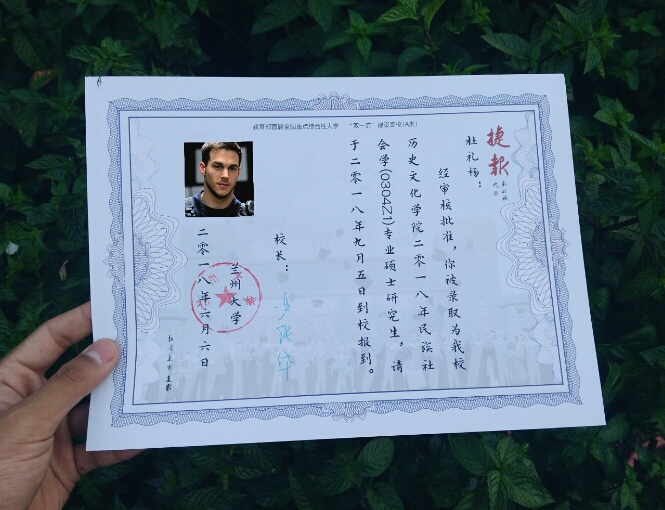 教育部直属全国重点综合性大学 “双一流”建设高校(A类)
捷报
杜礼杨：
经审核批准，你被录取为我校
历史文化学院二零一八年民族社
会学(0304Z1)专业硕士研究生，请
于二零一八年九月五日到校报到。
校长：
兰州大学
二零一八年六月六日